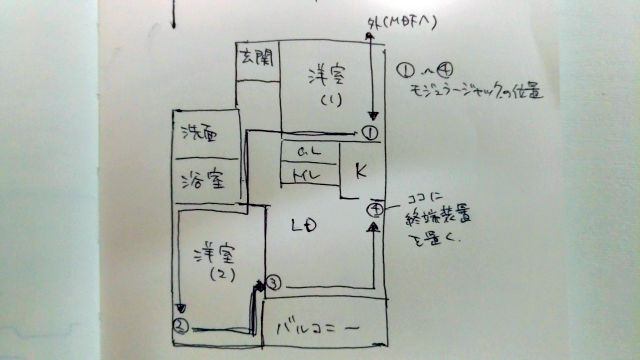 外(MDFへ)
玄関
洋室
(1)
①〜④
モジュラージャックの位置
①
洗面
CL
トイレ
K
浴室
④
ココに
終端装置
を置く.
LD
洋室
(2)
③
②
バルコニー